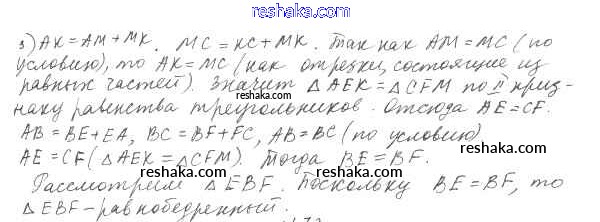 reshaka.com
3) AK = AM + MK. MC = KC + MK. Так как AM = MC (по
условию), то AK = MC (как отрезки, состоящие из
равных частей). Значит △AEK = △CFM по II приз-
reshaka.com reshaka.com
наку равенства треугольников. Отсюда AE = CF.
AB = BE + EA, BC = BF + FC, AB = BC (по условию)
AE = CF (△AEK = △CFM). Тогда BE = BF.
reshaka.com reshaka.com
Рассмотрим △EBF. Поскольку BE = BF, то
△EBF - равнобедренный.
reshaka.com